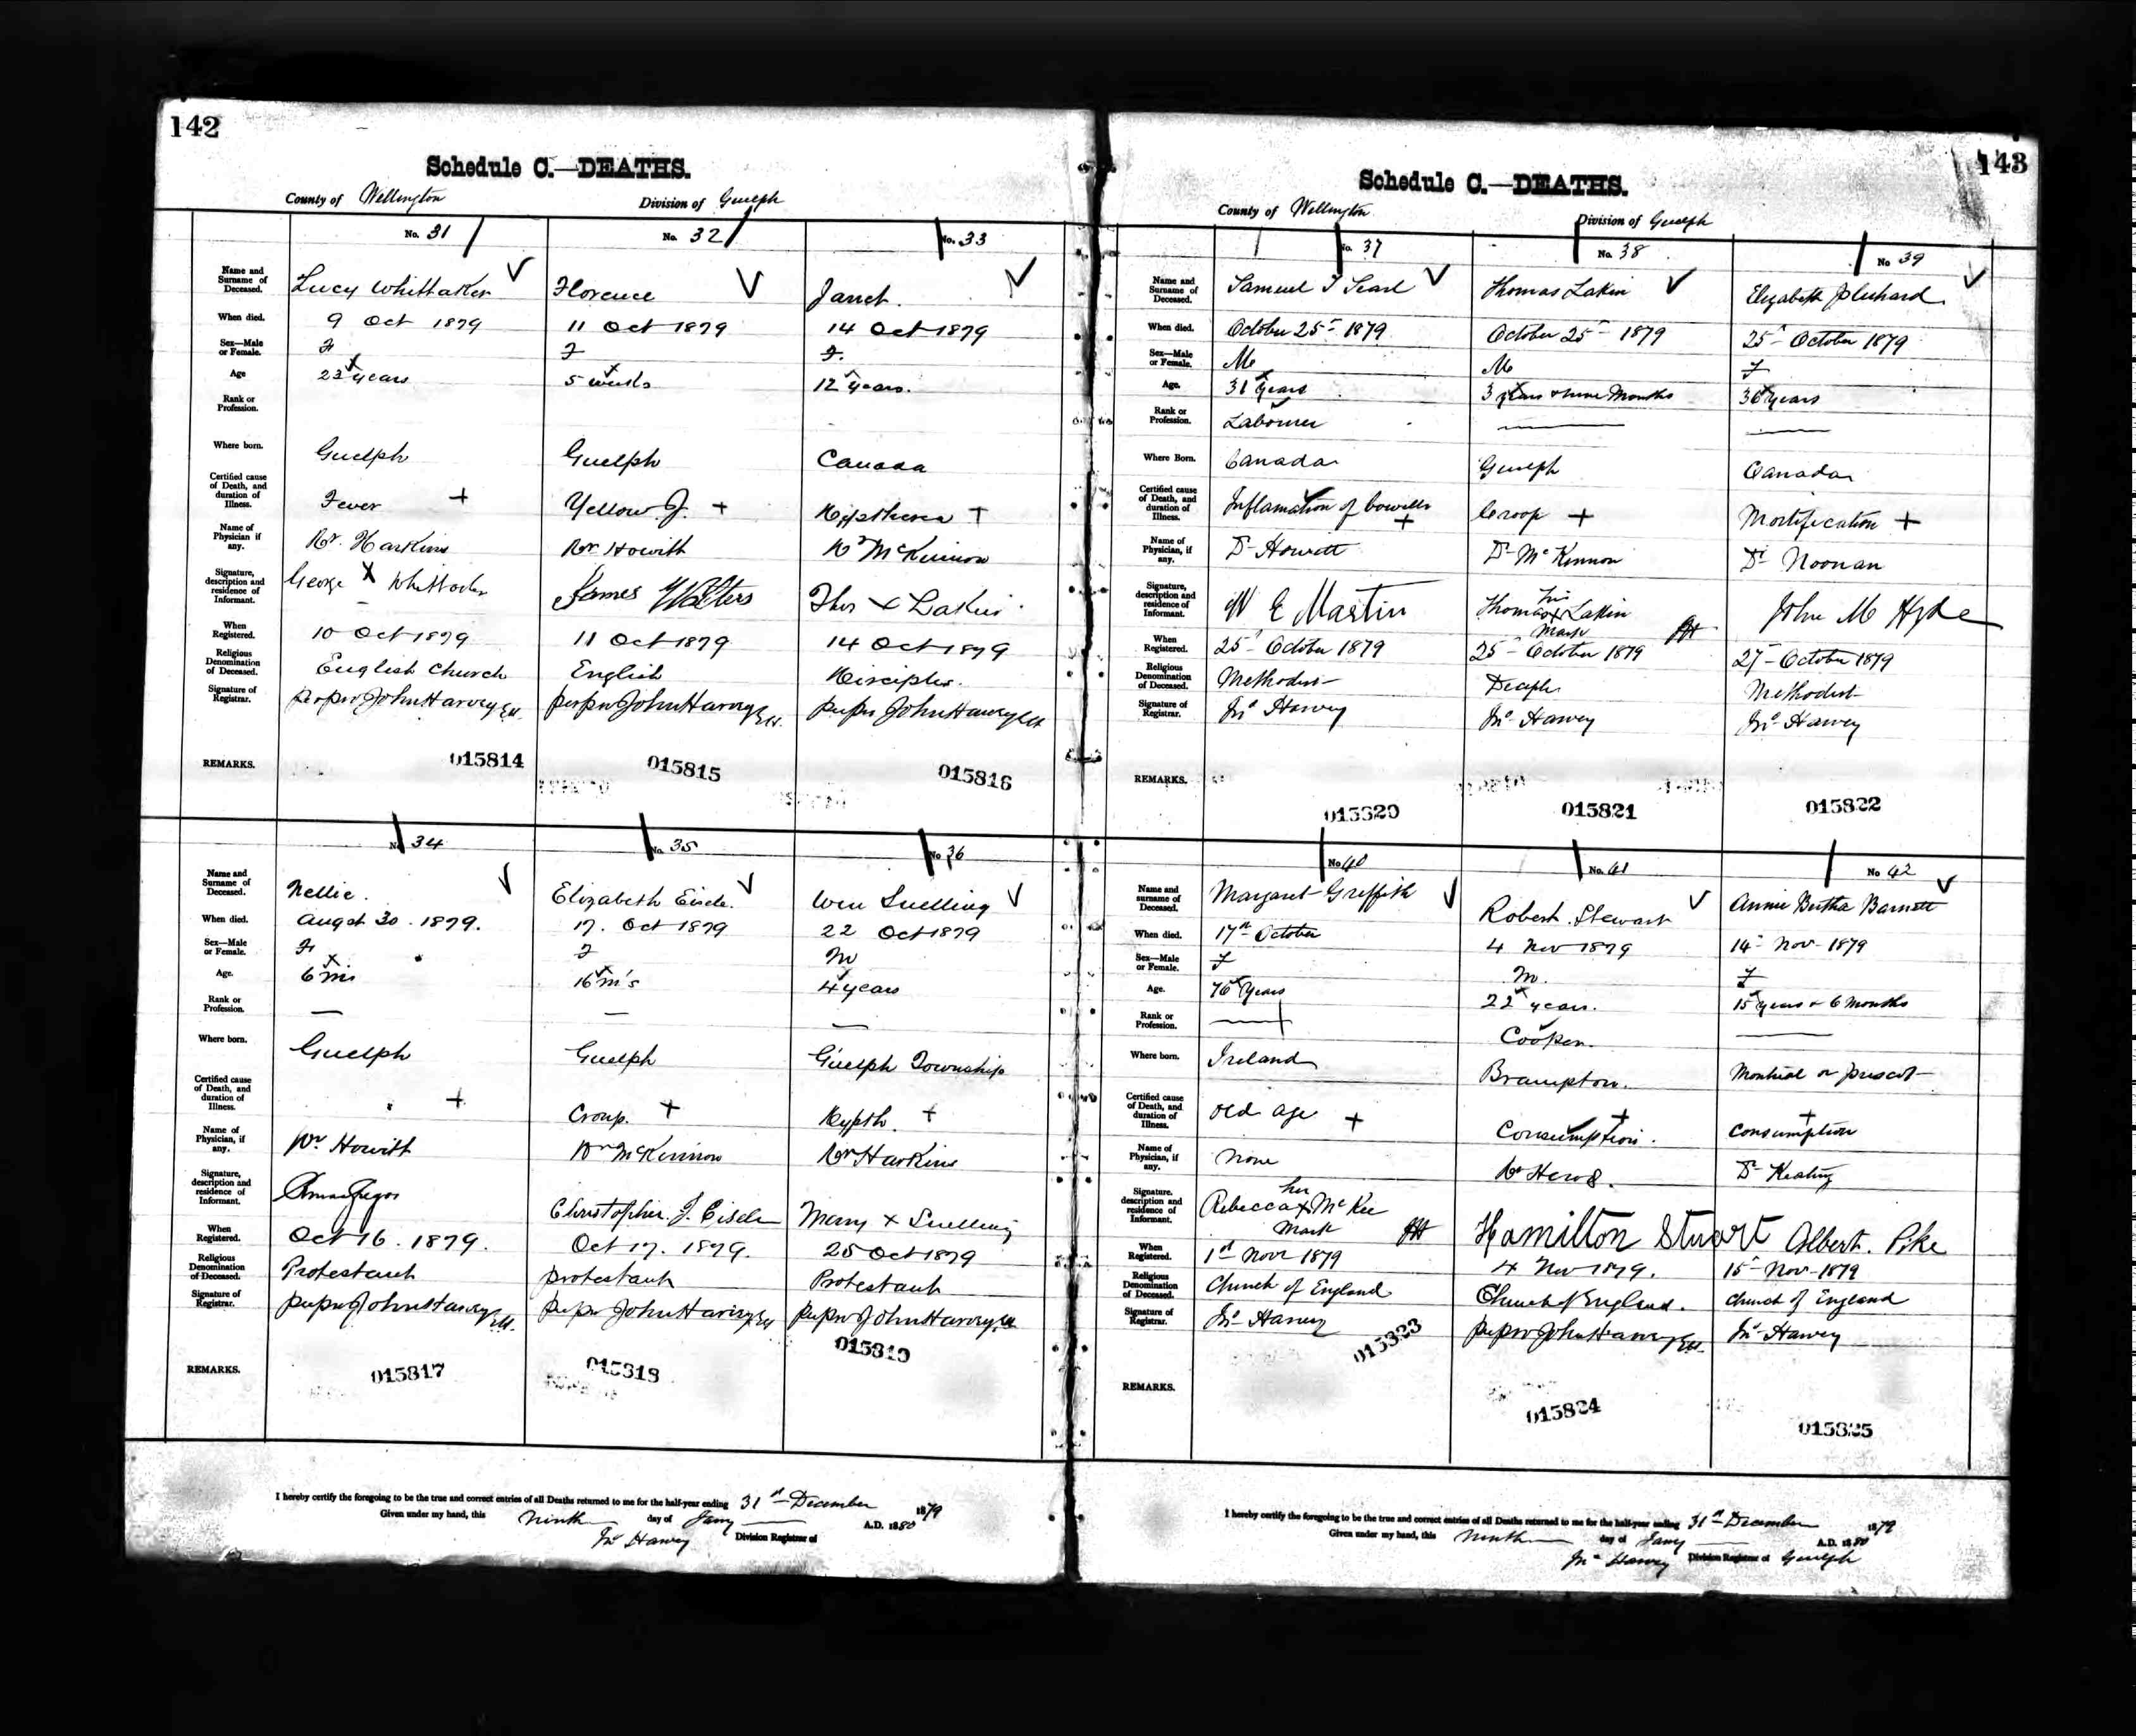 142
Schedule C.—DEATHS.
County of Wellington Division of Guelph
No. 31 No. 32 No. 33
Name and Surname of Deceased. Lucy Whittaker Florence Janet.
When died. 9 Oct 1879 11 Oct 1879 14 Oct 1879
Sex—Male or Female. F F F.
Age 23 years 5 weeks 12 years.
Rank or Profession.
Where born. Guelph Guelph Canada
Certified cause of Death, and duration of Illness. Fever + Yellow J. +
Name of Physician if any. Dr. Harkins Dr Howitt Dr McKinnon
Signature, description and residence of Informant. George X Whittaker James Walters Thos X Lakin
When Registered. 10 Oct 1879 11 Oct 1879 14 Oct 1879
Religious Denomination of Deceased. English Church English Disciples.
Signature of Registrar. John Harvey John Harvey John Harvey
REMARKS. 015814 015815 015816
No. 34 No. 35 No 36
Name and Surname of Deceased. Nellie. Elizabeth Eisele. Wm Snelling
When died. Augst 30. 1879. 17. Oct 1879 22 Oct 1879
Sex—Male or Female. F F M
Age. 6 ms 16 m's 4 years
Rank or Profession. — — —
Where born. Guelph Guelph Guelph Township
Certified cause of Death, and duration of Illness. + Croup. + Dypth. +
Name of Physician, if any. Dr Howitt Dr McKinnon Dr Harkins
Signature, description and residence of Informant. Christopher. J. Eisele Mary X Snelling
When Registered. Oct 16. 1879. Oct 17. 1879. 25 Oct 1879
Religious Denomination of Deceased. Protestant protestant Protestant
Signature of Registrar. John Harvey John Harvey John Harvey
REMARKS. 015817 015818 015819
I hereby certify the foregoing to be the true and correct entries of all Deaths returned to me for the half-year ending 31st December 1879
Given under my hand, this Ninth day of Jany A.D. 1880
Jno Harvey Division Registrar of
143
Schedule C.—DEATHS.
County of Wellington Division of Guelph
No. 37 No. 38 No 39
Name and Surname of Deceased. Samuel T Searl Thomas Lakin Elizabeth
When died. October 25th 1879 October 25th 1879 25th October 1879
Sex—Male or Female. M M F
Age. 31 years 3 years & nine Months 36 years
Rank or Profession. Labourer — —
Where Born. Canada Guelph Canada
Certified cause of Death, and duration of Illness. Inflamation of bowells + Croop + Mortification +
Name of Physician, if any. Dr Howitt Dr McKinnon Dr Noonan
Signature, description and residence of Informant. W E Martin Thomas his X Mark Lakin JH John M Hyde
When Registered. 25th October 1879 25th October 1879 27th October 1879
Religious Denomination of Deceased. Methodist Methodist
Signature of Registrar. Jno Harvey Jno Harvey Jno Harvey
REMARKS. 015820 015821 015822
No 40 No. 41 No 42
Name and surname of Deceased. Margaret Griffith Robert Stewart Annie Bertha Barnett
When died. 17th October 4 Nov 1879 14th Nov 1879
Sex—Male or Female. F M. F
Age. 76 Years 22 years. 15 years & 6 Months
Rank or Profession. — Cooper. —
Where born. Ireland Brampton. Montreal or prescot
Certified cause of Death, and duration of Illness. old age + Consumption. + Consumption +
Name of Physician, if any. None Dr Herod. Dr Keating
Signature. description and residence of Informant. Rebecca her X Mark McKee JH Hamilton Stuart Albert. Pike
When Registered. 1st Novr 1879 4 Nov 1879. 15th Nov 1879
Religious Denomination of Deceased. Church of England Church of England. Church of England
Signature of Registrar. Jno Harvey John Harvey Jno Harvey
REMARKS. 015823 015824 015825
I hereby certify the foregoing to be the true and correct entries of all Deaths returned to me for the half-year ending 31st December 1879
Given under my hand, this Ninth day of Jany A.D. 1880
Jno Harvey Division Registrar of Guelph